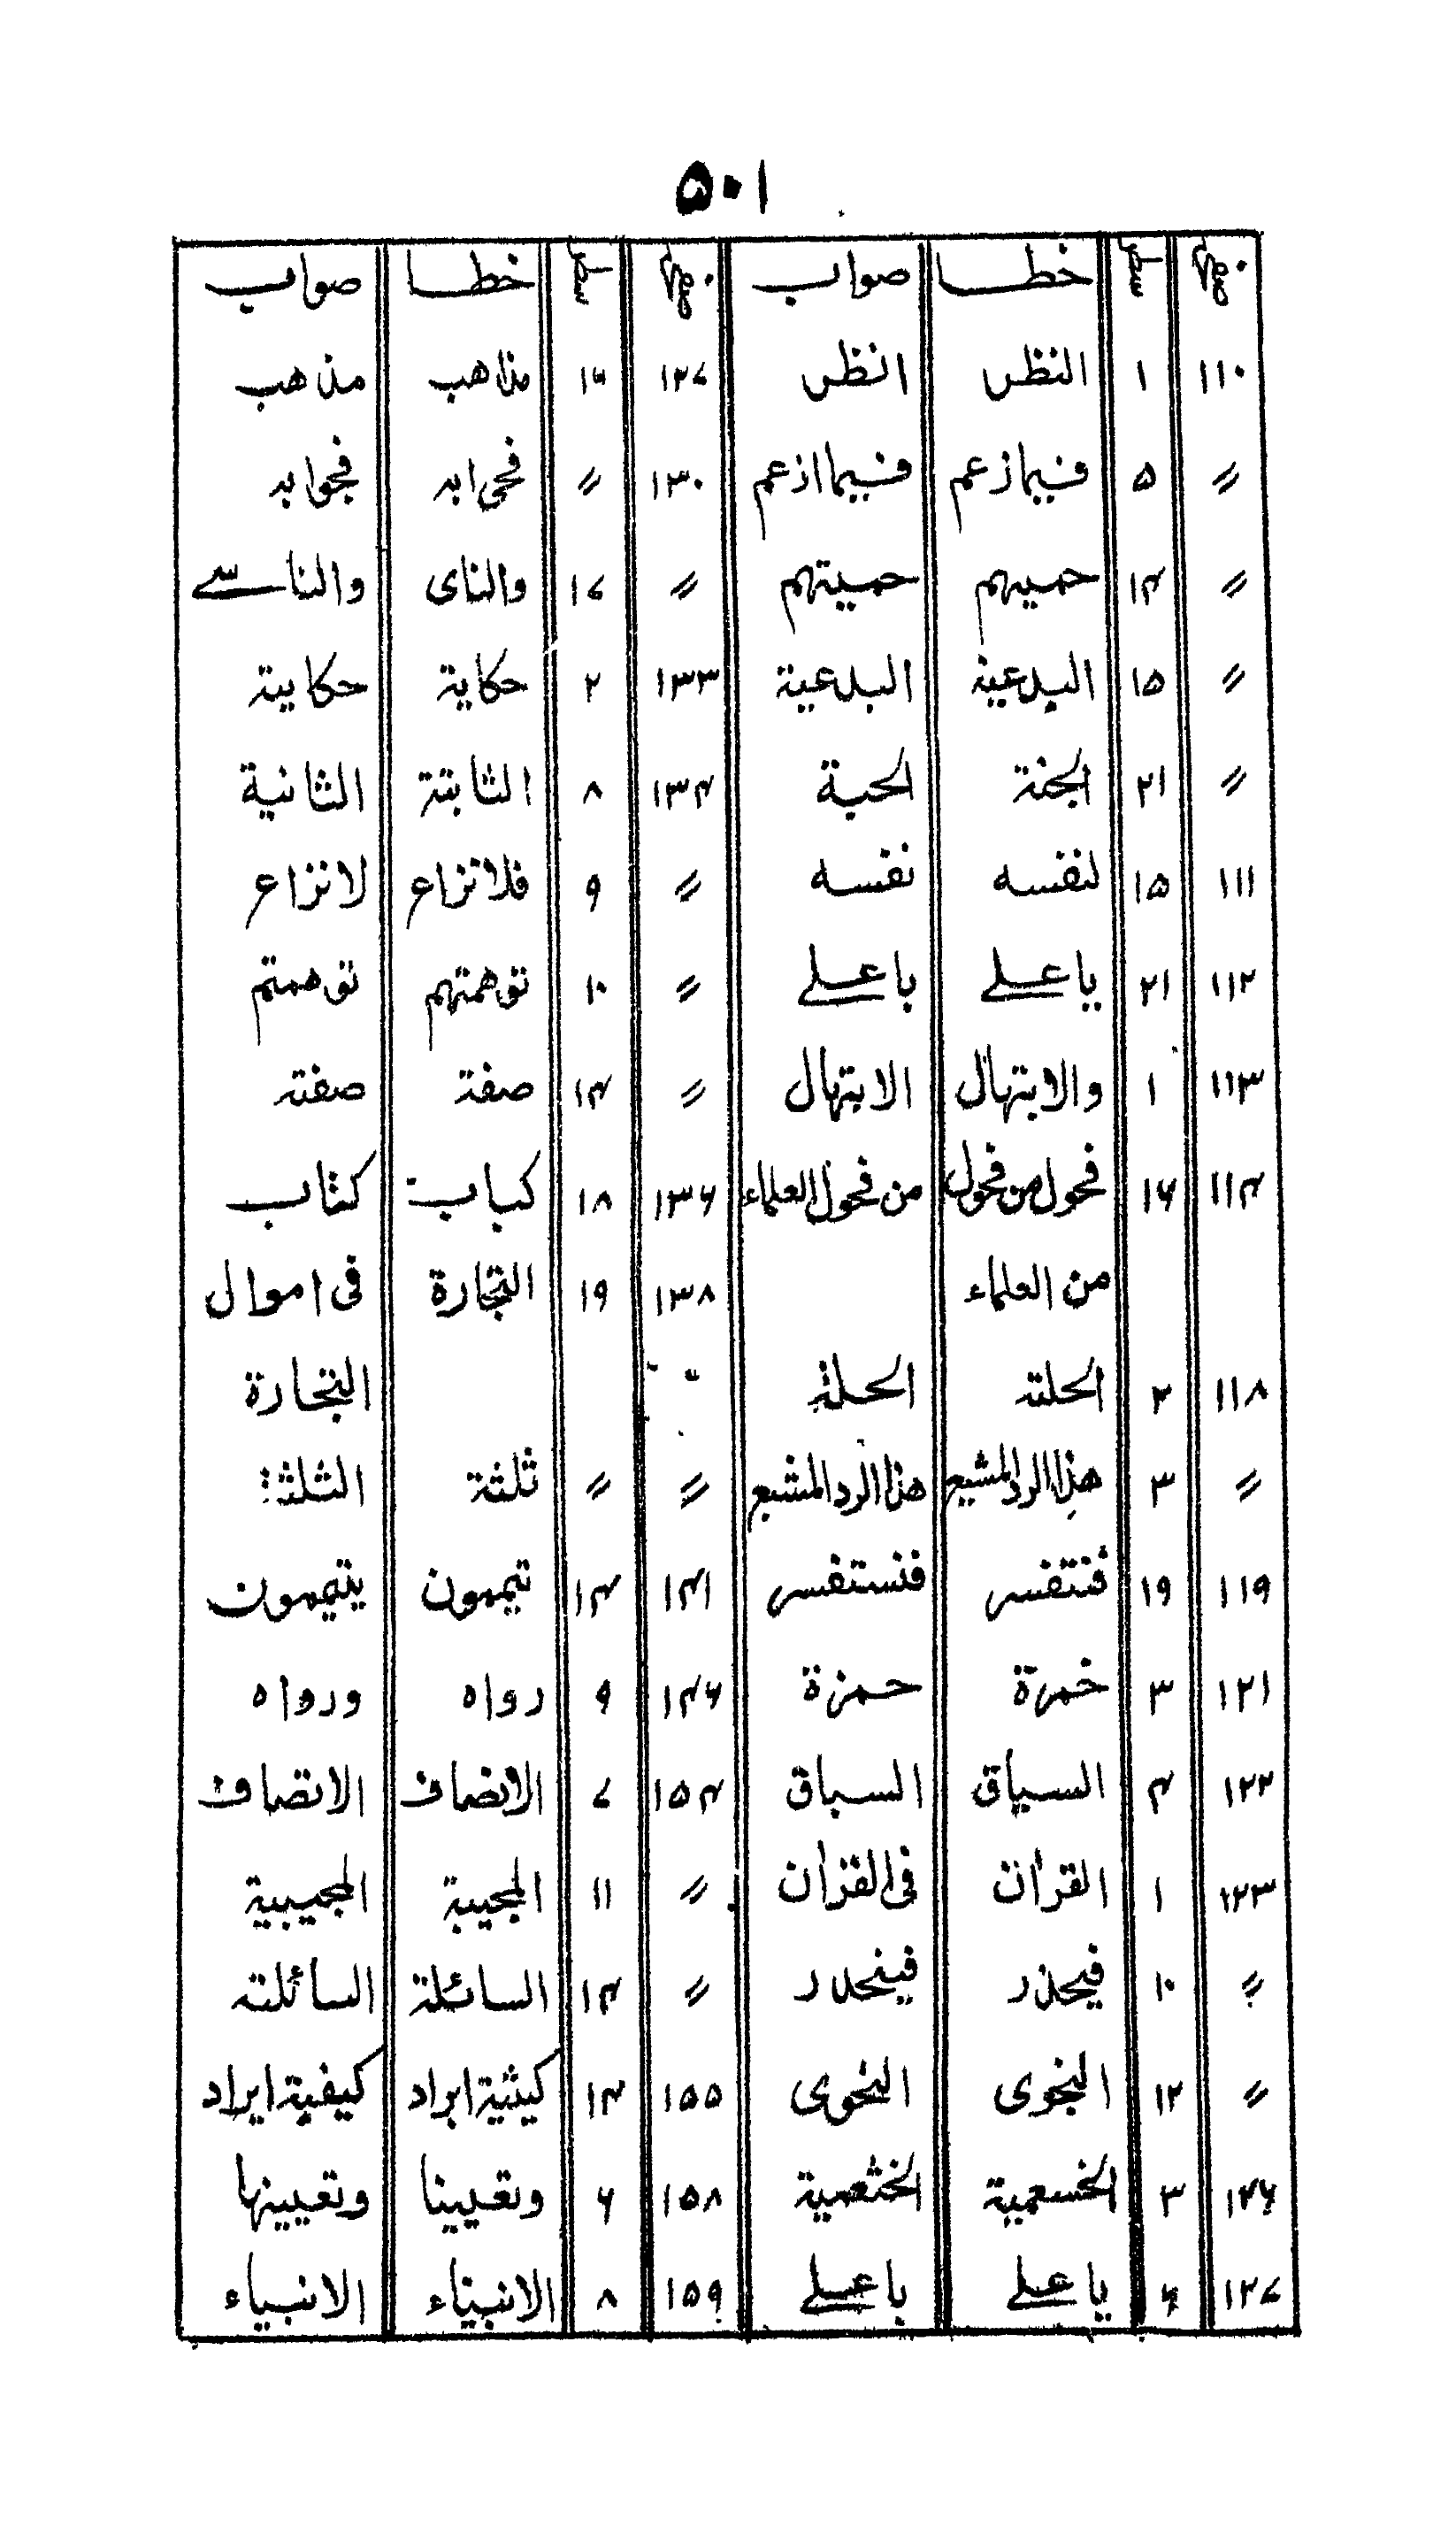 ٥٠١
صفحہ سطر خطا صواب صفحہ سطر خطا صواب
١١٠ ١ النظر انظر ١٢٧ ١٦ مذاهب مذهب
〃 ٥ فيماذعم فيما اذعم ١٣٠ 〃 فجوابه
〃 ١٤ حميهم حميتهم 〃 ١٧ والناى والناسے
〃 ١٥ البدعية ١٣٣ ٢ حكاية حكايته
〃 ٢١ الجنة الحية ١٣٤ ٨ الثابتة الثانية
١١١ ١٥ لنفسه نفسه 〃 ٩ فلانزاع لانزاع
١١٢ ٢١ ياعلے باعلے 〃 ١٠ توهمتهم توهمتم
١١٣ ١ والابتهال الابتهال 〃 ١٤ صفة صفته
١١٤ ١٦ فحول من فحول من فحول العلماء ١٣٦ ١٨ كباب كتاب
من العلماء ١٣٨ ١٩ التجارة فى اموال
١١٨ ٢ الحلته الحلة التجارة
〃 ٣ هذا الرد المشيع هذا الرد المشبع 〃 〃 ثلثة الثلثة
١١٩ ١٩ فنستفسر ١٤١ ١٤ تيمهون يتيمهون
١٢١ ٣ خمرة حمزة ١٤٦ ٩ رواه ورواه
١٢٢ ٤ السياق السباق ١٥٤ ٧ الانضاف الانصاف
١٢٣ ١ القرآن فى القرآن 〃 ١١ المجيبة المجيبية
〃 ١٠ فيحذر فينحدر 〃 ١٤ السائلة السائلته
〃 ١٢ النجوى النحوى ١٥٥ ١٤ كيثية ايراد كيفية ايراد
١٢٦ ٣ الخسعمية الخثعمية ١٥٨ ٦ وتعيينا وتعيينها
١٢٧ ٤ ياعلے باعلے ١٥٩ ٨ الانبيناء الانبياء